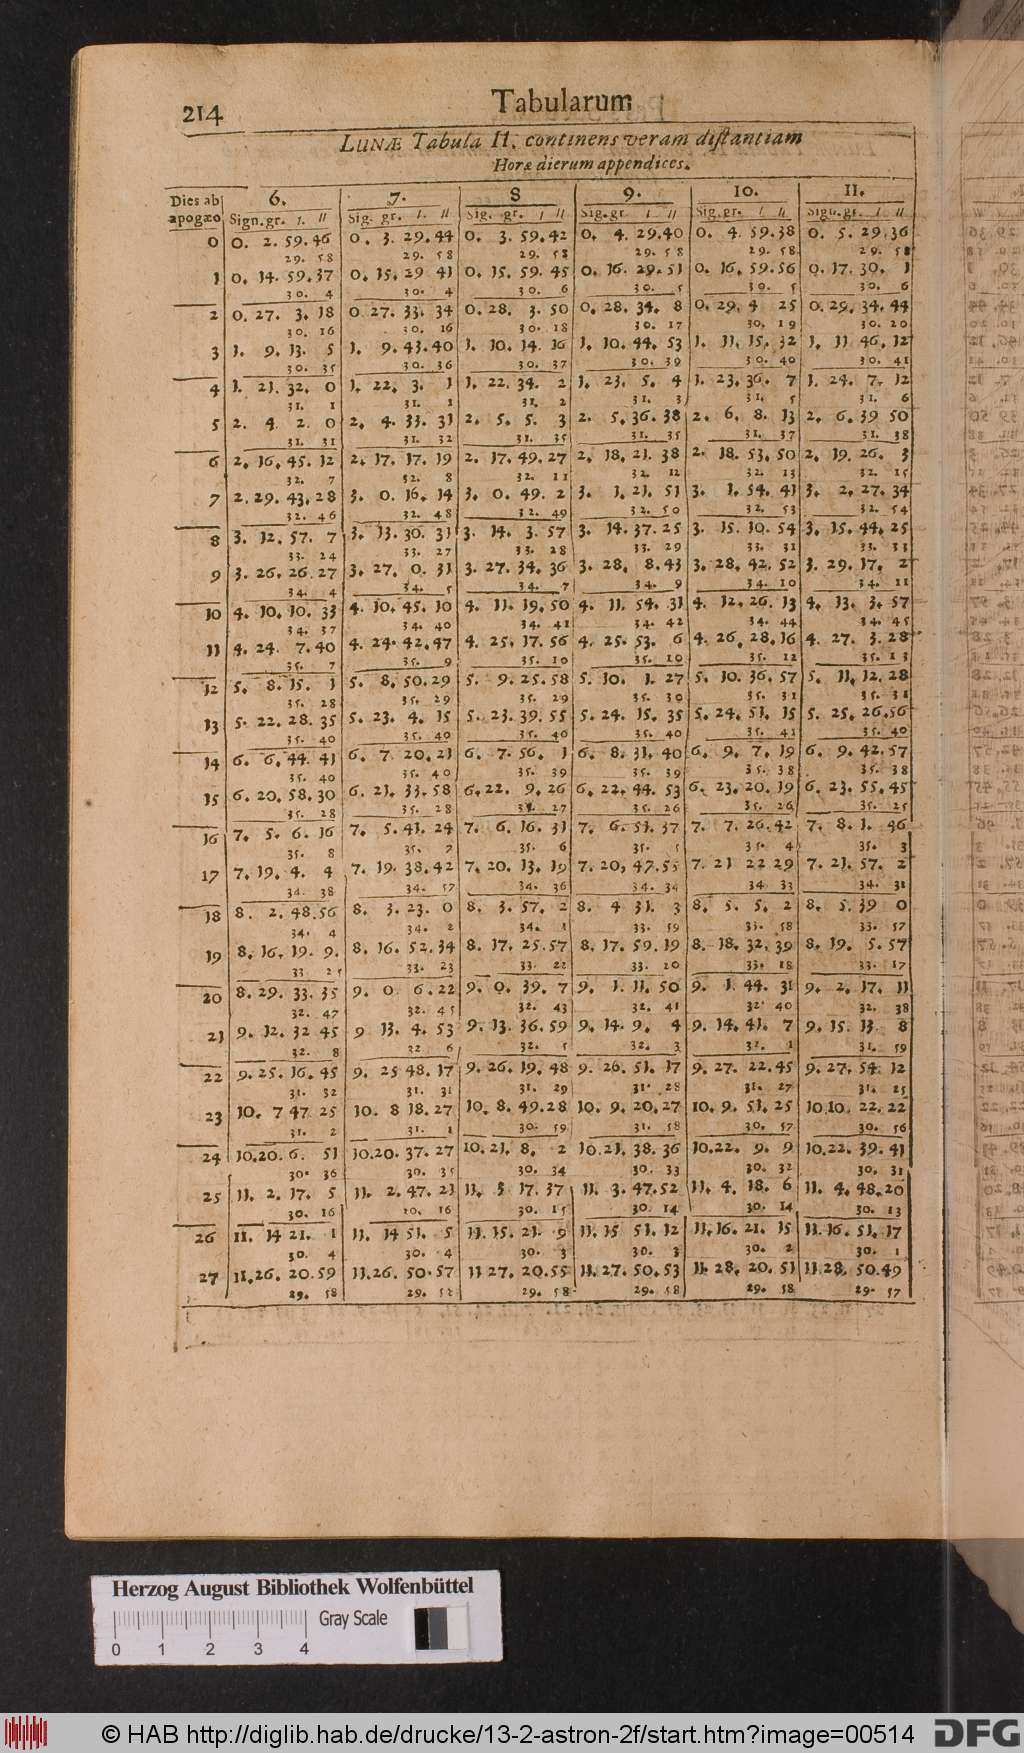 214
Tabularum
LUNÆ Tabula II. continens veram distantiam
Horæ dierum appendices.
Dies ab apogæo 6. 7. 8 9. 10. 11.
Sign.gr. ı. ıı Sig. gr. ı. ıı Sig. gr. ı ıı Sig.gr. ı. ıı Sig.gr. ı. ıı Sign.gr. ı. ıı
0 0. 2. 59. 46 0. 3. 29. 44 0. 3. 59. 42 0. 4. 29. 40 0. 4. 59. 38 0. 5. 29. 36
29. 58 29. 58 29. 58 29. 58 29. 58 29. 58
1 0. 14. 59. 37 0. 15. 29 41 0. 15. 59. 45 0. 16. 29. 51 0. 16. 59. 56 0. 17. 30. 1
30. 4 30. 4 30. 6 30. 5 30. 5 30. 6
2 0. 27. 3. 18 0 27. 33. 34 0. 28. 3. 50 0. 28. 34. 8 0. 29. 4 25 0. 29. 34. 44
30. 16 30. 16 30. 18 30. 17 30. 19 30. 20
3 1. 9. 13. 5 1. 9. 43. 40 1. 10. 14. 16 1. 10. 44. 53 1. 11. 15. 32 1. 11 46. 12
30. 35 30. 36 30. 37 30. 39 30. 40 30. 41
4 1. 21. 32. 0 1. 22. 3. 1 1. 22. 34. 2 1. 23. 5. 4 1. 23. 36. 7 1. 24. 7. 12
31. 1 31. 1 31. 2 31. 3 31. 5 31. 6
5 2. 4. 2. 0 2. 4. 33. 31 2. 5. 5. 3 2. 5. 36. 38 2. 6. 8. 13 2. 6. 39 50
31. 31 31. 32 31. 35 31. 35 31. 37 31. 38
6 2. 16. 45. 12 2. 17. 17. 19 2. 17. 49. 27 2. 18. 21. 38 2. 18. 53. 50 2. 19. 26. 3
32. 7 32. 8 32. 11 32. 12 32. 13 32. 15
7 2. 29. 43. 28 3. 0. 16. 14 3. 0. 49. 2 3. 1. 21. 51 3. 1. 54. 41 3. 2. 27. 34
32. 46 32. 48 32. 49 32. 50 32. 53 32. 54
8 3. 12. 57. 7 3. 13. 30. 31 3. 14. 3. 57 3. 14. 37. 25 3. 15. 10. 54 3. 15. 44. 25
33. 24 33. 27 33. 28 33. 29 33. 31 33. 33
9 3. 26. 26. 27 3. 27. 0. 31 3. 27. 34. 36 3. 28. 8. 43 3. 28. 42. 52 3. 29. 17. 2
34. 4 34. 5 34. 7 34. 9 34. 10 34. 11
10 4. 10. 10. 33 4. 10. 45. 10 4. 11. 19. 50 4. 11. 54. 31 4. 12. 26. 13 4. 13. 3. 57
34. 37 34. 40 34. 41 34. 42 34. 44 34. 45
11 4. 24. 7. 40 4. 24. 42. 47 4. 25. 17. 56 4. 25. 53. 6 4. 26. 28. 16 4. 27. 3. 28
35. 7 35. 9 35. 10 35. 10 35. 12 35. 13
12 5. 8. 15. 1 5. 8. 50. 29 5. 9. 25. 58 5. 10. 1. 27 5. 10. 36. 57 5. 11. 12. 28
35. 28 35. 29 35. 29 35. 30 35. 31 35. 31
13 5. 22. 28. 35 5. 23. 4. 15 5. 23. 39. 55 5. 24. 15. 35 5. 24. 51. 15 5. 25. 26. 56
35. 40 35. 40 35. 40 35. 40 35. 41 35. 40
14 6. 6. 44. 41 6. 7 20. 21 6. 7. 56. 1 6. 8. 31. 40 6. 9. 7. 19 6. 9. 42. 57
35. 40 35. 40 35. 39 35. 39 35. 38 35. 38
15 6. 20. 58. 30 6. 21. 33. 58 6. 22. 9. 26 6. 22. 44. 53 6. 23. 20. 19 6. 23. 55. 45
35. 28 35. 28 35. 27 35. 26 35. 26 35. 25
16 7. 5. 6. 16 7. 5. 41. 24 7. 6. 16. 31 7. 6. 51. 37 7. 7. 26. 42 7. 8. 1. 46
35. 8 35. 7 35. 6 35. 5 35. 4 35. 3
17 7. 19. 4. 4 7. 19. 38. 42 7. 20. 13. 19 7. 20. 47. 55 7. 21 22 29 7. 21. 57. 2
34. 38 34. 37 34. 36 34. 34 34. 33 34. 31
18 8. 2. 48. 56 8. 3. 23. 0 8. 3. 57. 2 8. 4 31. 3 8. 5. 5. 2 8. 5. 39 0
34. 4 34. 2 34. 1 33. 59 33. 58 33. 57
19 8. 16. 19. 9. 8. 16. 52. 34 8. 17. 25. 57 8. 17. 59. 19 8. 18. 32. 39 8. 19. 5. 57
33. 25 33. 23 33. 22 33. 20 33. 18 33. 17
20 8. 29. 33. 35 9. 0 6. 22 9. 0. 39. 7 9. 1. 11. 50 9. 1. 44. 31 9. 2. 17. 11
32. 47 32. 45 32. 43 32. 41 32. 40 32. 38
21 9. 12. 32 45 9 13. 4. 53 9. 13. 36. 59 9. 14. 9. 4 9. 14. 41. 7 9. 15. 13. 8
32. 8 32 6 32. 5 32. 3 32. 1 31. 59
22 9. 25. 16. 45 9. 25 48. 17 9. 26. 19. 48 9. 26. 51. 17 9. 27. 22. 45 9. 27. 54. 12
31. 32 31. 31 31. 29 31. 28 31. 27 31. 25
23 10. 7 47 25 10. 8 18. 27 10. 8. 49. 28 10. 9. 20. 27 10. 9. 51. 25 10. 10. 22. 22
31. 2 31. 1 30. 59 31. 58 30. 57 30. 56
24 10. 20. 6. 51 10. 20. 37. 27 10. 21. 8. 2 10. 21. 38. 36 10. 22. 9. 9 10. 22. 39. 41
30. 36 30. 35 30. 34 30. 33 30. 32 30. 31
25 11. 2. 17. 5 11. 2. 47. 21 11. 3 17. 37 11. 3. 47. 52 11. 4. 18. 6 11. 4. 48. 20
30. 16 30. 16 30. 15 30. 14 30. 14 30. 13
26 11. 14 21. 1 11. 14 51. 5 11. 15. 21. 9 11. 15 51. 12 11. 16. 21. 15 11. 16. 51. 17
30. 4 30. 4 30. 3 30. 3 30. 2 30. 1
27 11. 26. 20. 59 11. 26. 50. 57 11 27. 20. 55 11. 27. 50. 53 11. 28. 20. 51 11. 28. 50. 49
29. 58 29. 58 29. 58 29. 58 29. 58 29. 57
Herzog August Bibliothek Wolfenbüttel
Gray Scale
0 1 2 3 4
© HAB http://diglib.hab.de/drucke/13-2-astron-2f/start.htm?image=00514
DFG